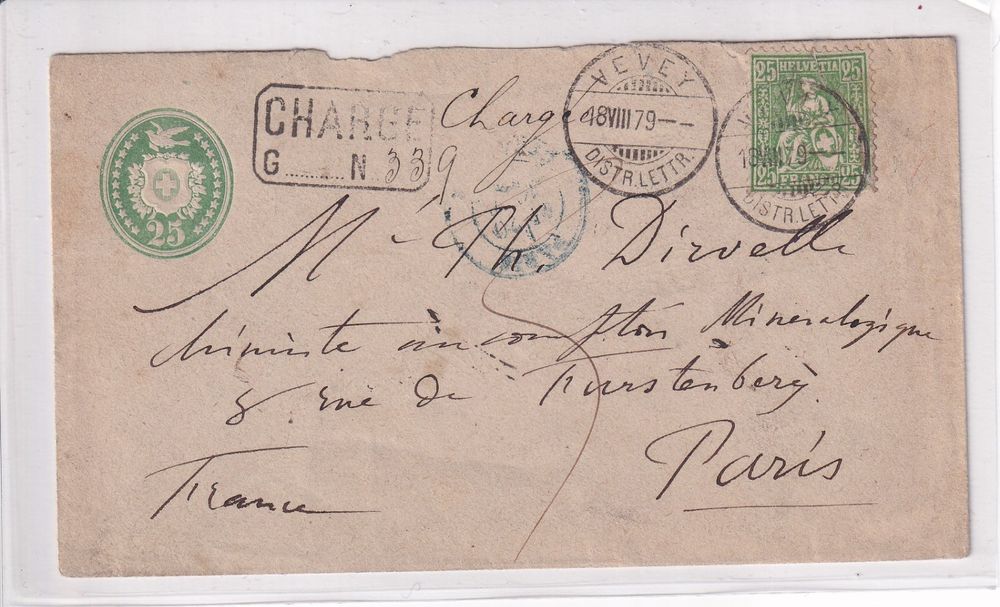 25 HELVETIA 25
25 FRANCO 25
VEVEY
18 VIII 79 – –
DISTR. LETTR.
18 VIII 79
DISTR. LETTR.
CHARGÉ
G ........ N 339
Chargé
25
M Th. Dirvelle
chimiste
Minéralogique
8 rue de Furstenberg
Paris
France